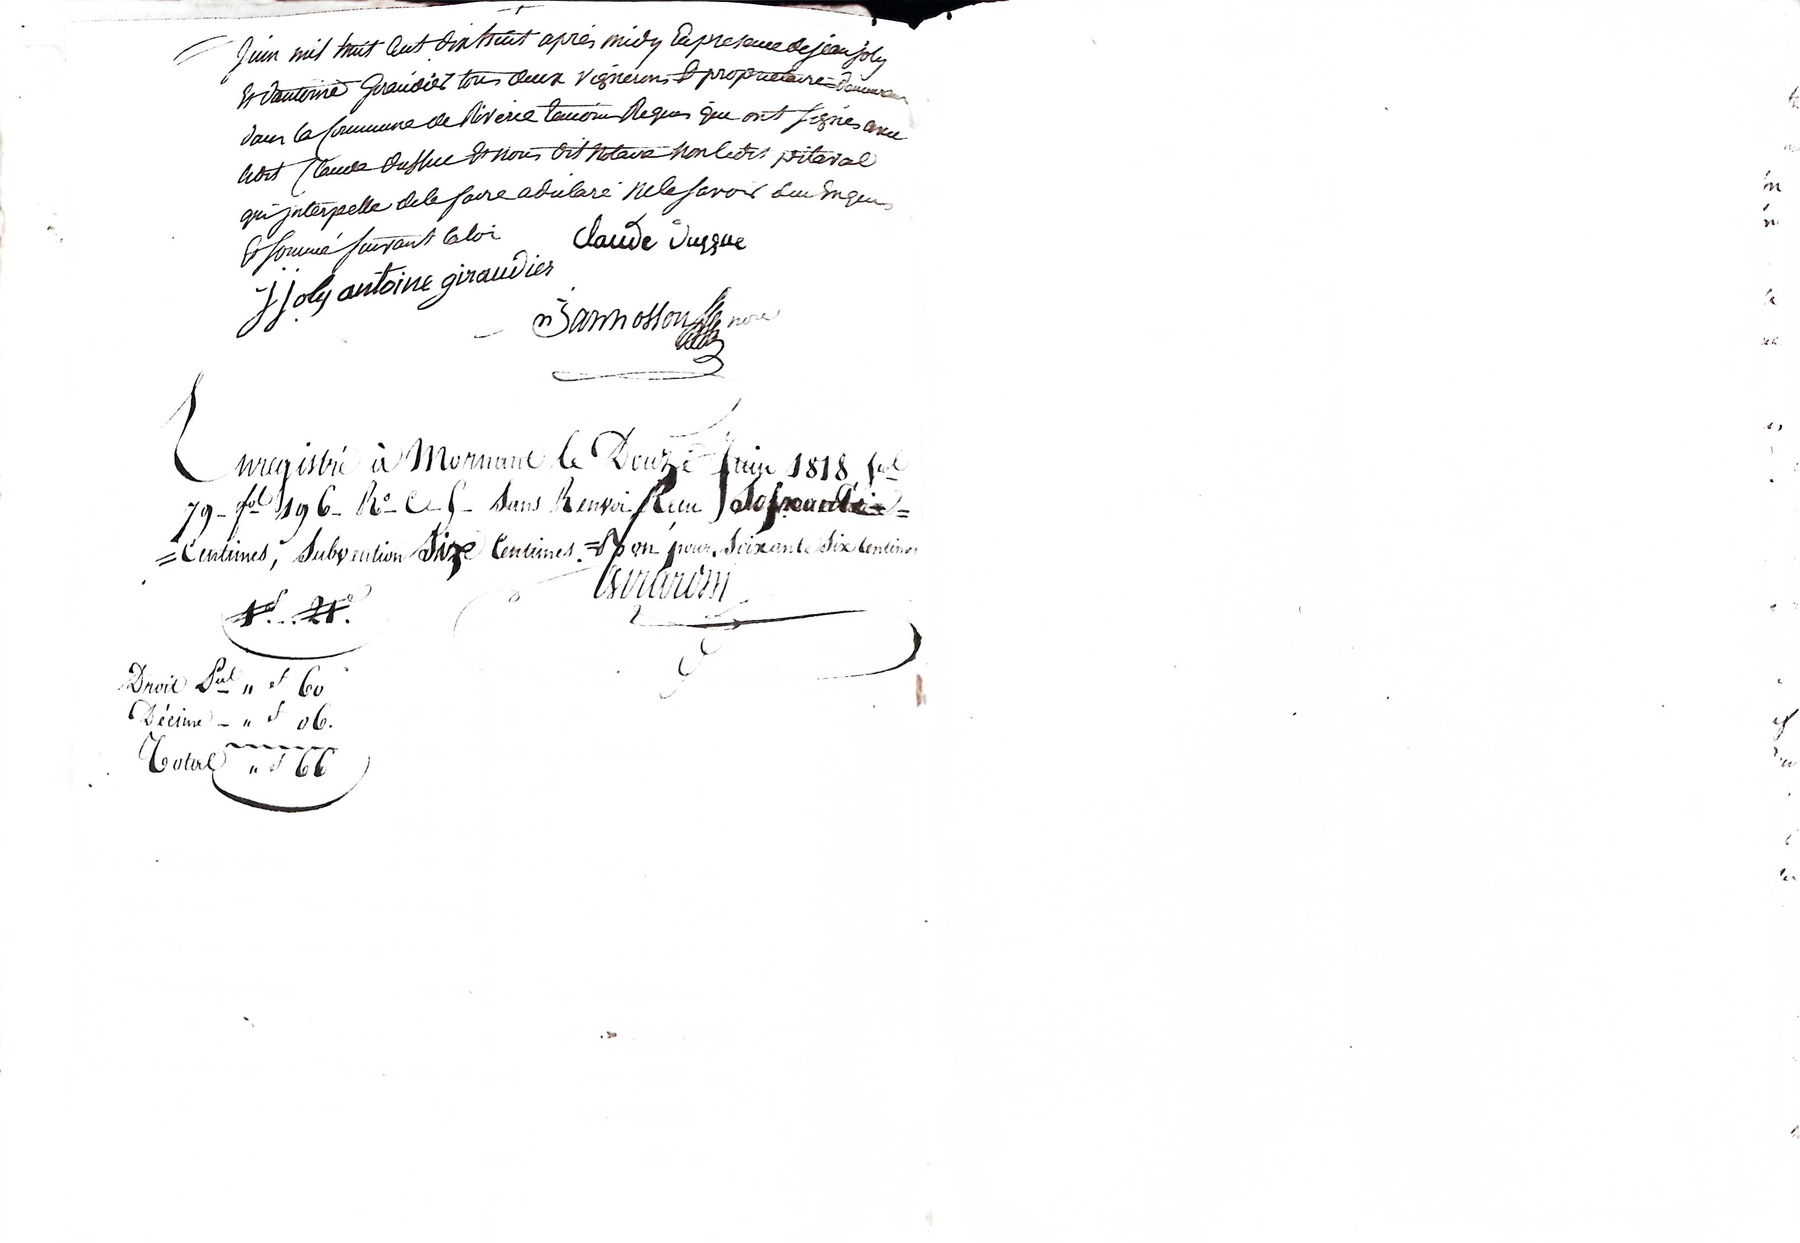 juin mil huit cent dix huit après midy En presence de jean joly
Et d'antoine Giraudier tous deux vignerons Et proprietaire
dans la Commune de Riverie temoins Requis que ont signés avec
ledit Claude dussuc Et nous dit Notaire non ledit pitaval
qui interpelle de le faire a declaré ne le savoir de ce Enquis
Et sommé suivant la loi
Claude dussuc
J joly antoine giraudier
Enregistré à Mornant le Douze Juin 1818 fol
79 - fol 196 - Ro. C. f - Sans Renvoi Reçu Soixante =
= Centimes, Subvention Six Centimes. = Bon pour Soixante Six Centimes
Droit Pal " f 60
Décime - " f 06.
Total " f 66